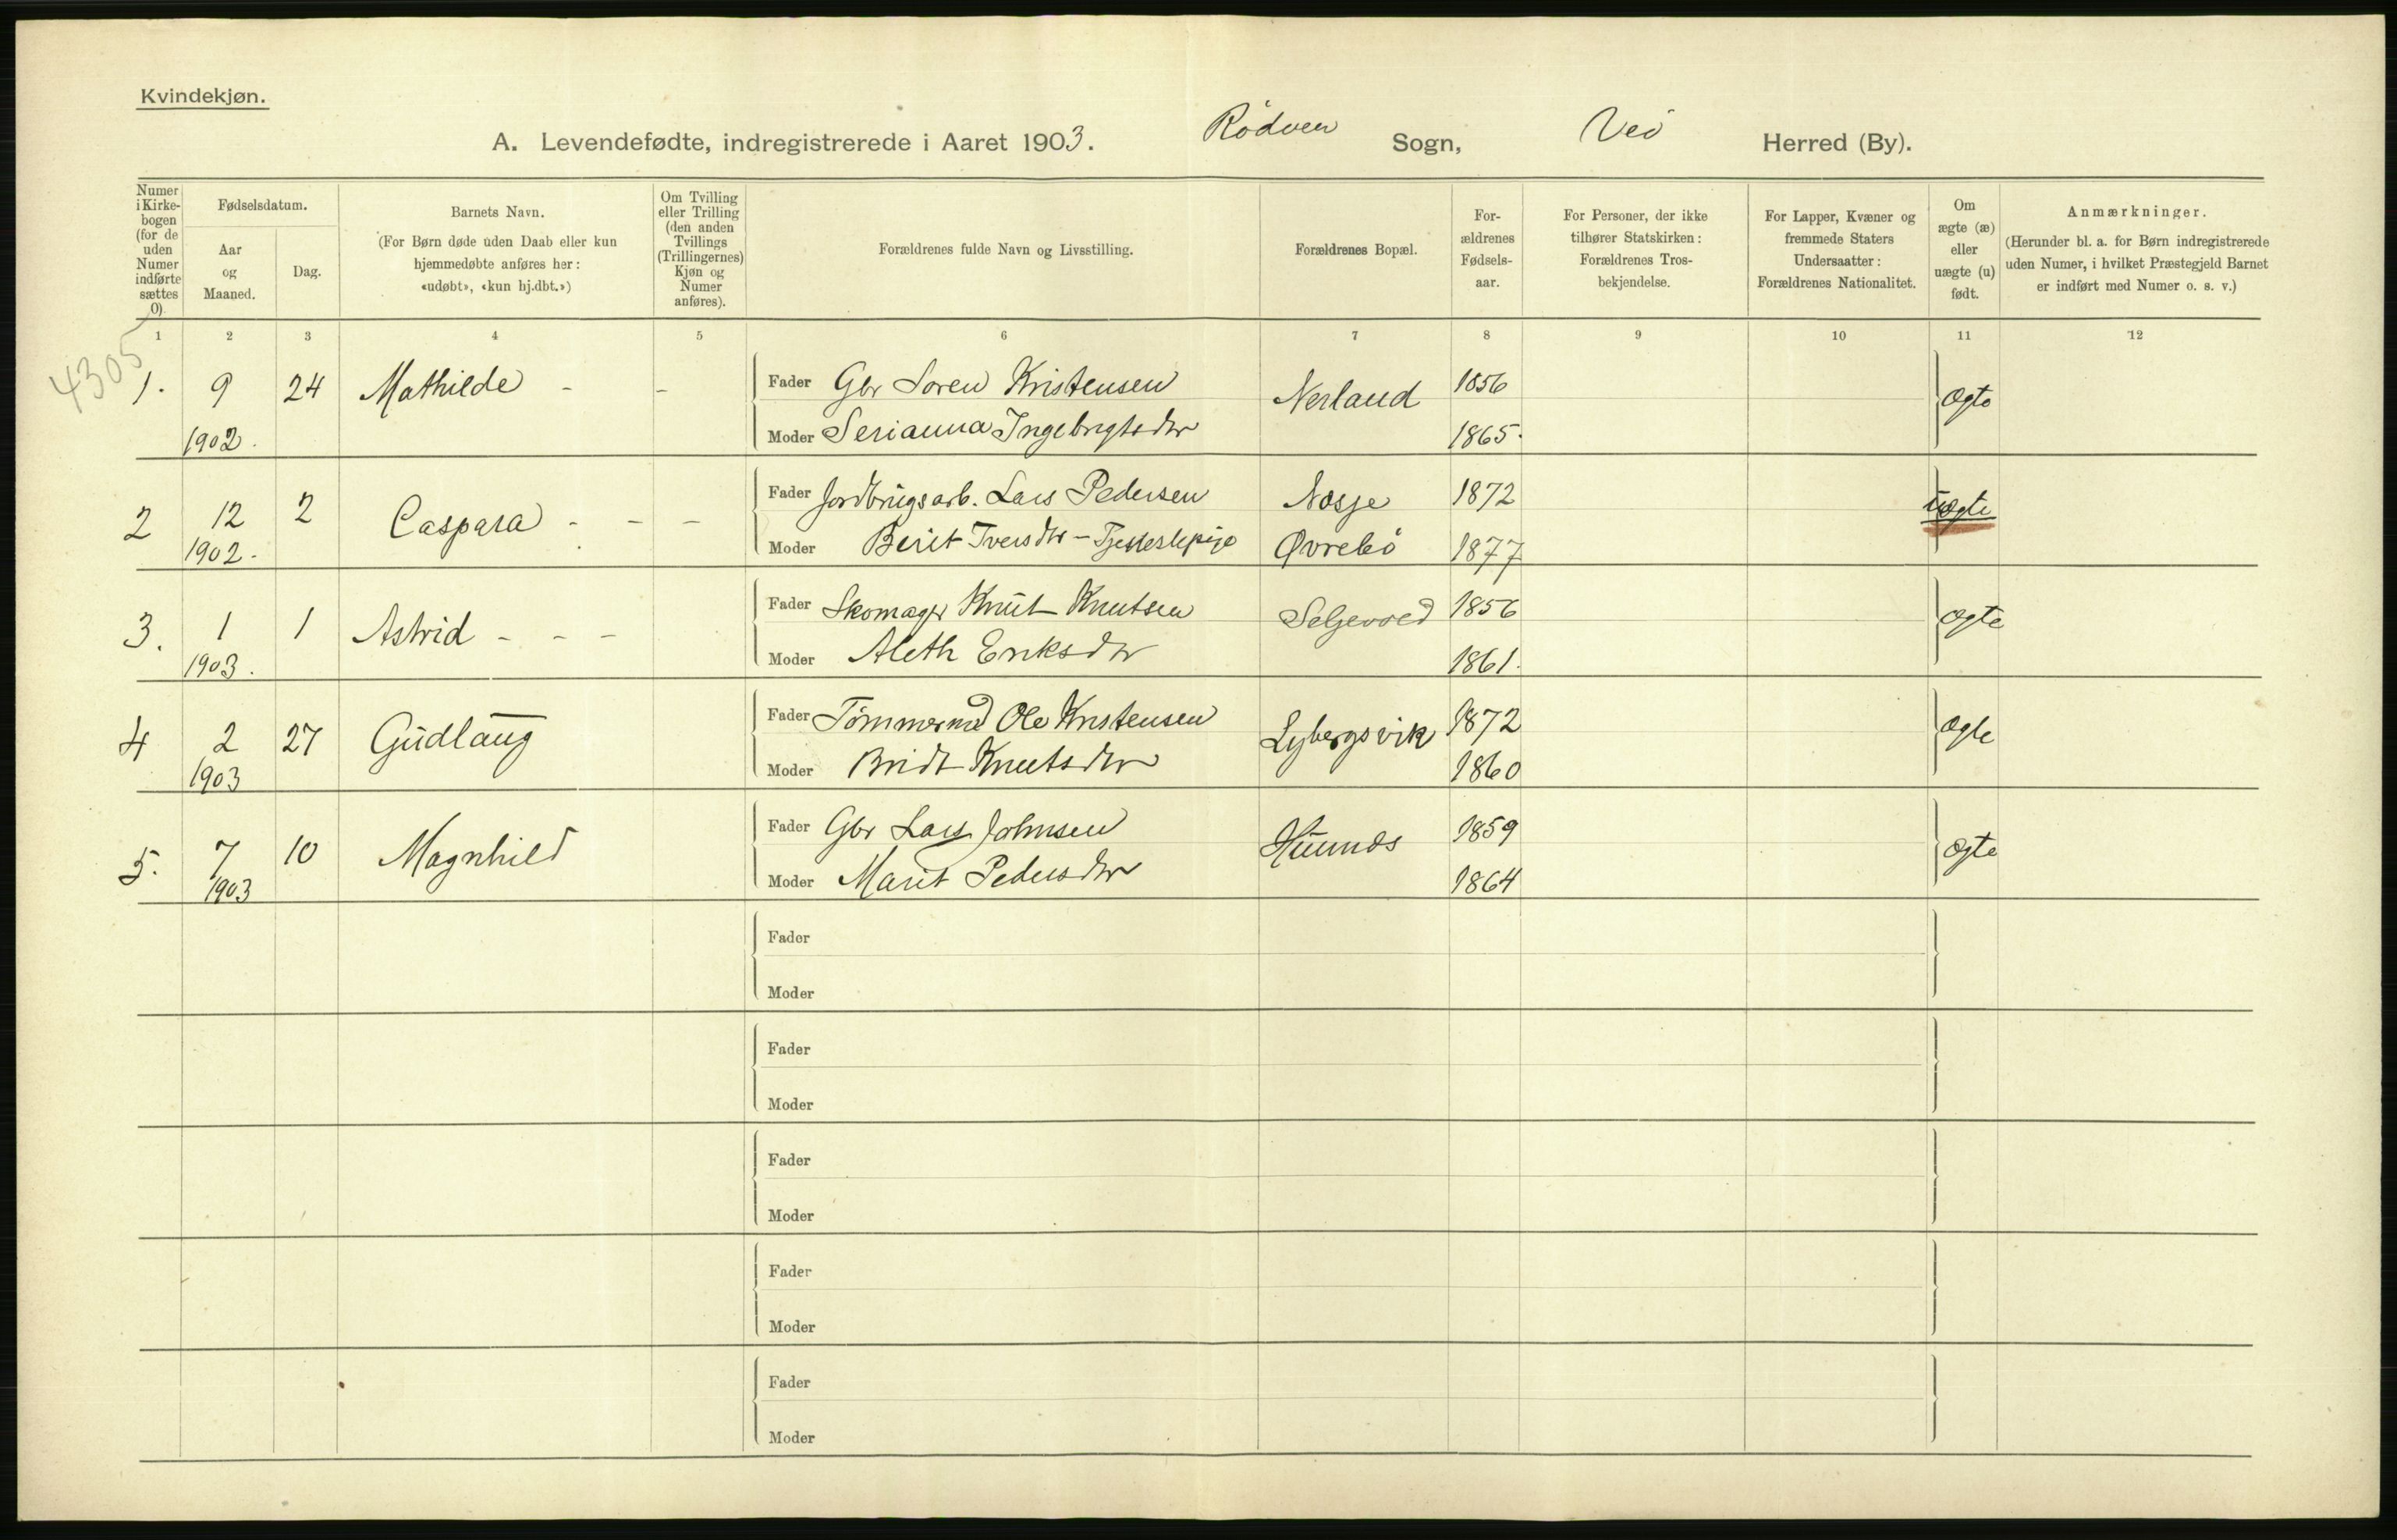 Kvindekjøn.
A. Levendefødte, indregistrerede i Aaret 1903. Rödven Sogn, Veö Herred (By).
Numer i Kirkebogen (for de uden Numer indførte sættes 0)
Fødselsdatum.
Aar og Maaned.
Dag.
Barnets Navn.
(For Børn døde uden Daab eller kun hjemmedøbte anføres her: «udøbt», «kun hj.dbt.»)
Om Tvilling eller Trilling (den anden Tvillings (Trillingernes) Kjøn og Numer anføres).
Forældrenes fulde Navn og Livsstilling.
Forældrenes Bopæl.
Forældrenes Fødselsaar.
For Personer, der ikke tilhører Statskirken: Forældrenes Trosbekjendelse.
For Lapper, Kvæner og fremmede Staters Undersaatter: Forældrenes Nationalitet.
Om ægte (æ) eller uægte (u) født.
Anmærkninger.
(Herunder bl. a. for Børn indregistrerede uden Numer, i hvilket Præstegjeld Barnet er indført med Numer o. s. v.)
1 2 3 4 5 6 7 8 9 10 11 12
4305
1. 9 24 Mathilde - - Fader Gbr Soren Kristensen Nerland 1856 ægte
1902. Moder Serianna Ingebrigtsdtr 1865.
2 12 2 Caspara - - - Fader Jordbrugsarb. Lars Pedersen Nosje 1872 uægte
1902. Moder Berit Iversdtr - Tjenestepige Øvrebö 1877
3. 1 1 Astrid - - - Fader Skomager Knut Knutsen 1856 ægte
1903. Moder Aleth Eriksdtr 1861.
4 2 27 Gudlaug Fader Tömmermd Ole Kristensen Lybergsvik 1872 ægte
1903 Moder Bridt Knutsdtr 1860
5. 7 10 Magnhild Fader Gbr Lars Johnsen 1859 ægte
1903 Moder Marit Pedersdtr 1864
Fader
Moder
Fader
Moder
Fader
Moder
Fader
Moder
Fader
Moder